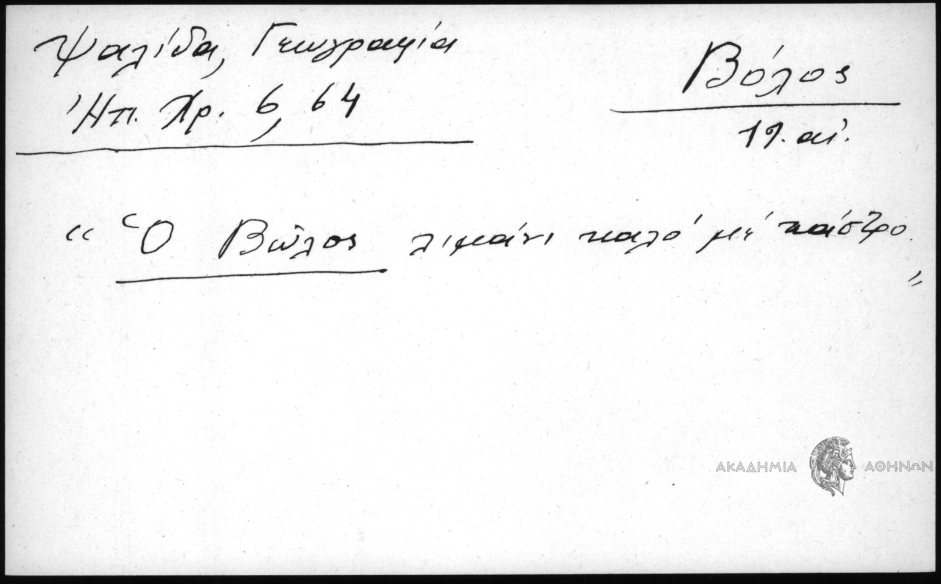 Ψαλίδα, Γεωγραφία
Ἠπ. Χρ. 6, 64
Βόλος
19. αἰ.
“Ὁ Βῶλος λιμάνι καλό μέ κάστρο.”
ΑΚΑΔΗΜΙΑ ΑΘΗΝΩΝ